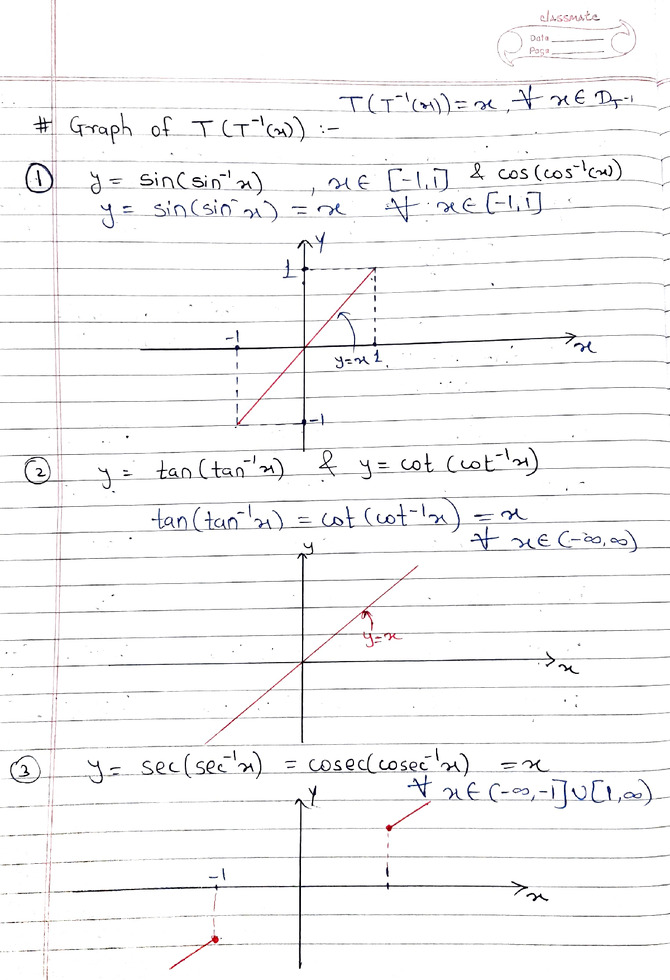 classmate
Date
Page
T(T⁻¹(x)) = x, ∀ x ∈ D_T⁻¹
# Graph of T(T⁻¹(x)) :-
① y = sin(sin⁻¹x) , x ∈ [-1,1] & cos(cos⁻¹(x))
y = sin(sin⁻x) = x ∀ x ∈ [-1,1]
y
1
-1
y=x 1
x
-1
② y = tan(tan⁻¹x) & y = cot(cot⁻¹x)
tan(tan⁻¹x) = cot(cot⁻¹x) = x
∀ x ∈ (-∞,∞)
y
y=x
x
③ y = sec(sec⁻¹x) = cosec(cosec⁻¹x) = x
∀ x ∈ (-∞,-1]∪[1,∞)
y
-1
1
x